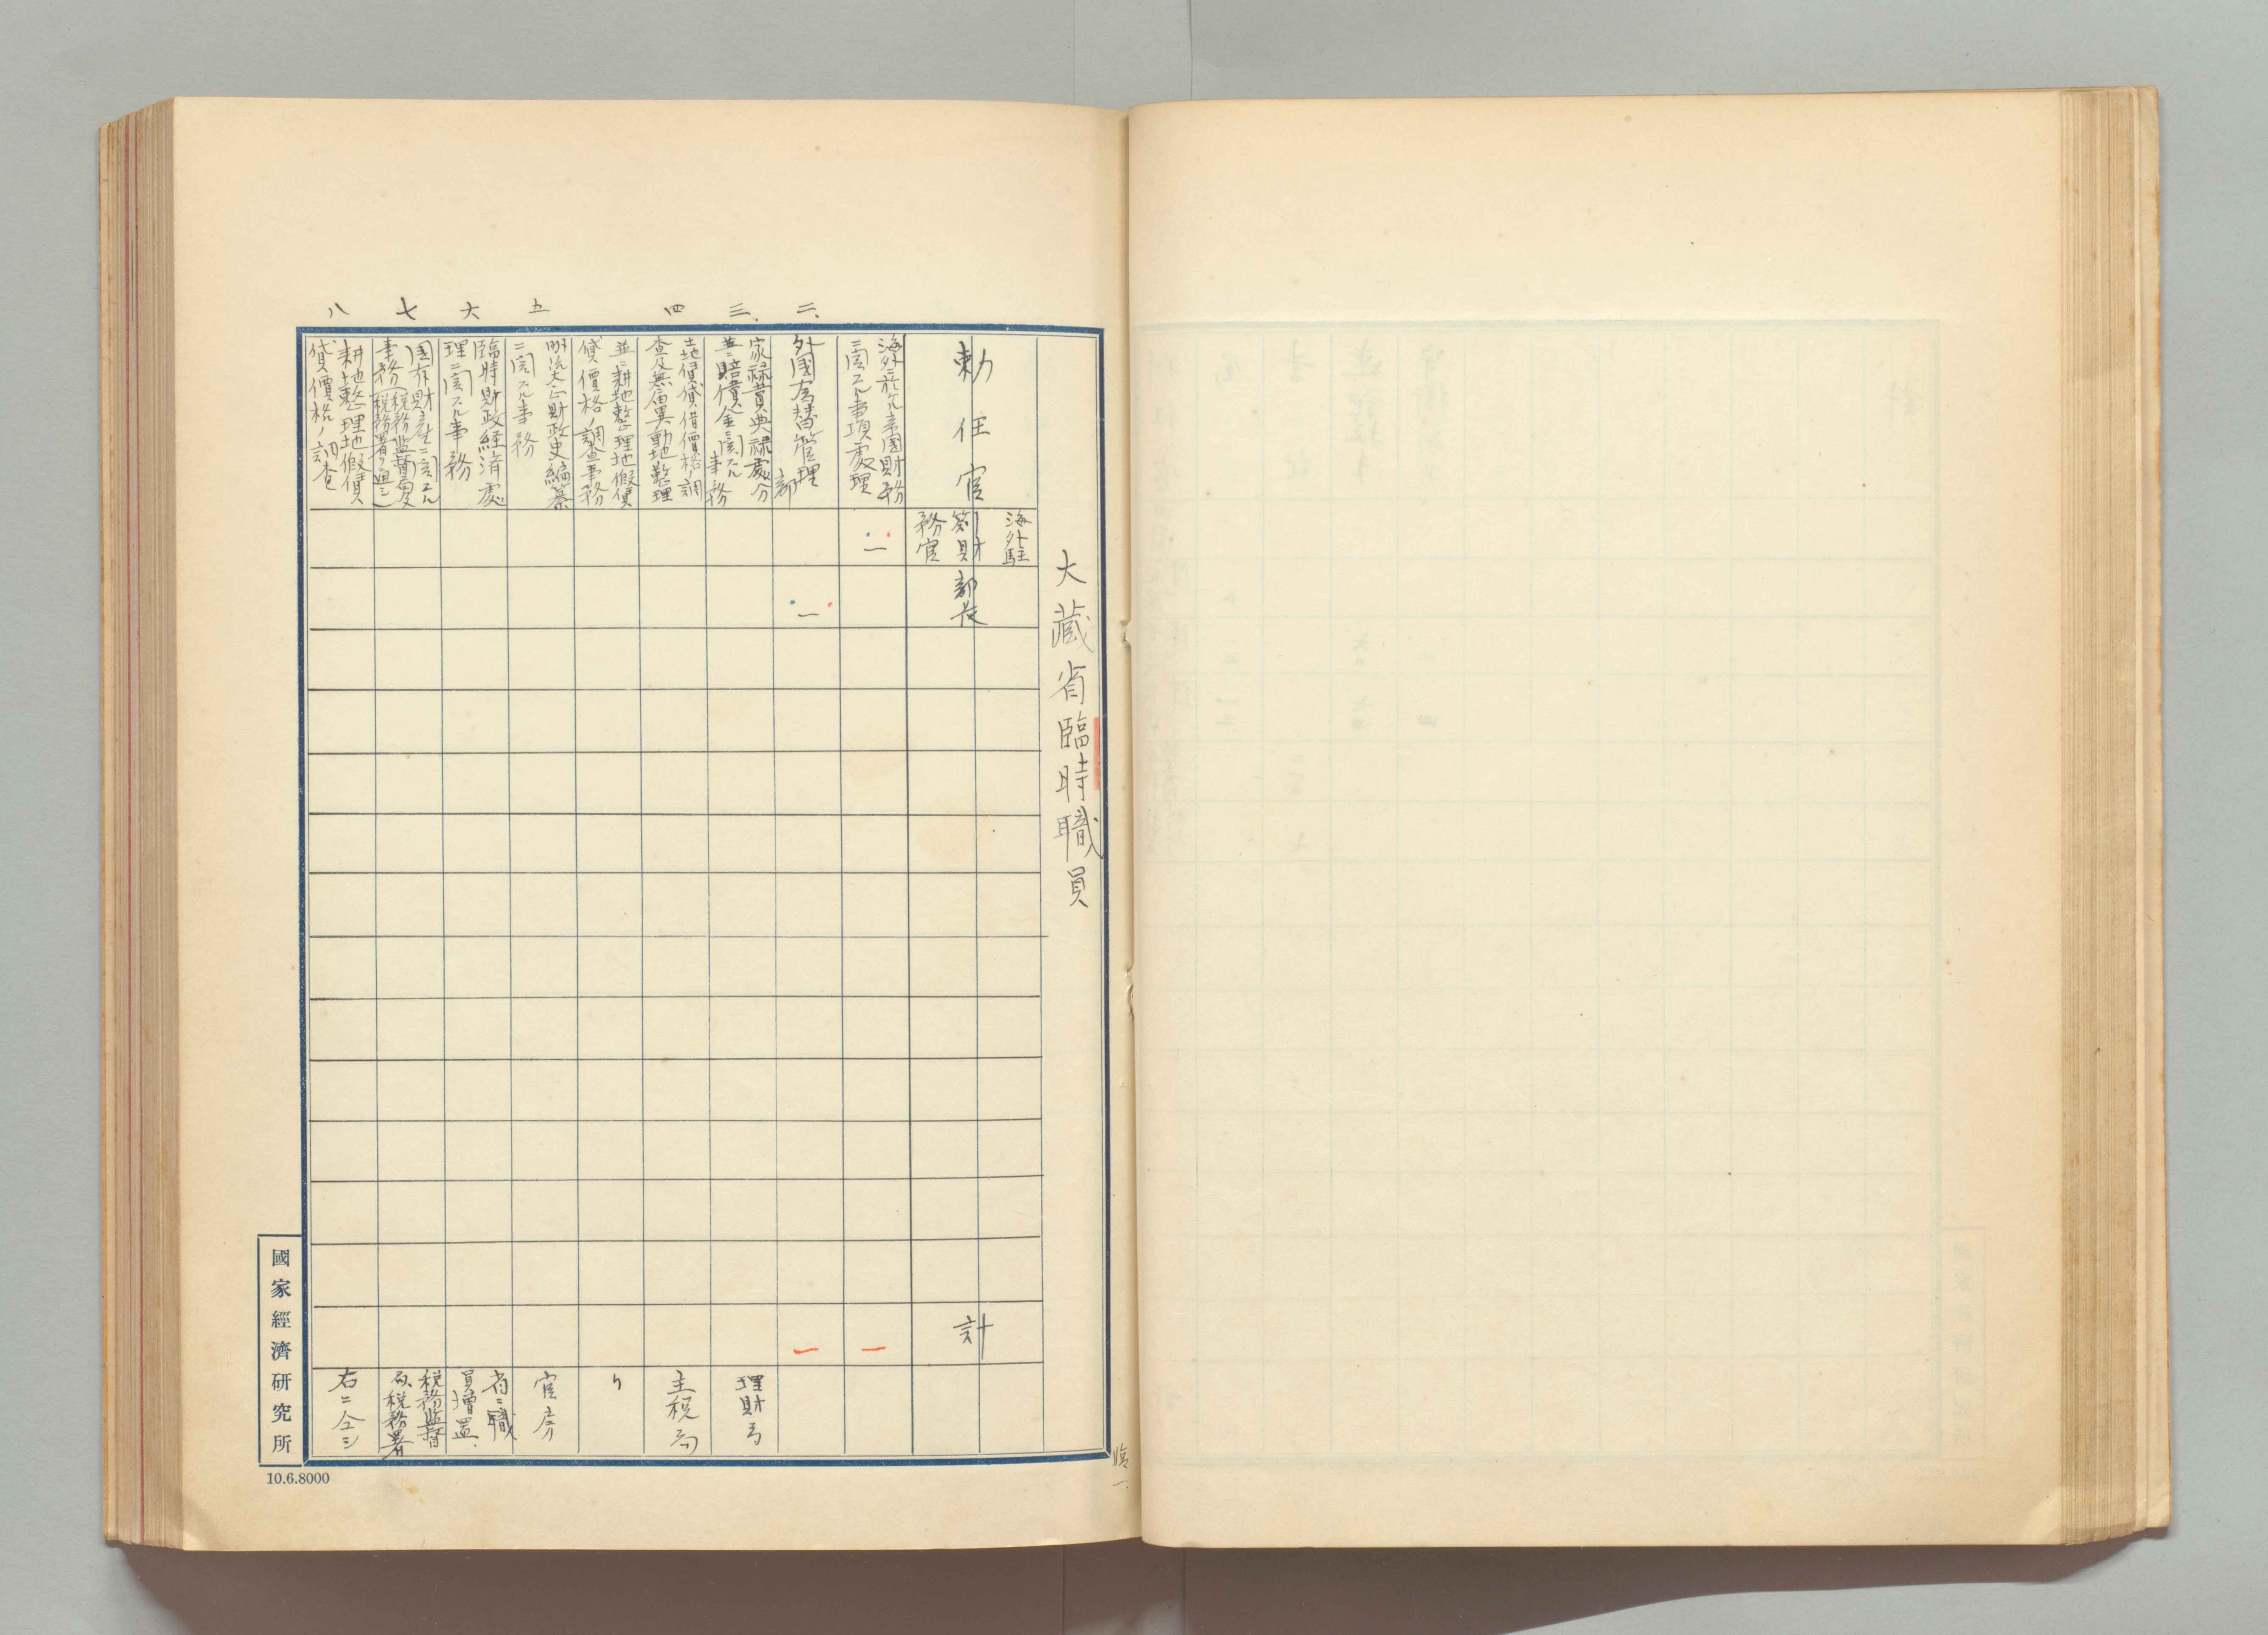 大藏省臨時職員
勅任官
海外駐
箚財
務官
部長
計
海外ニ於ケル帝國財務
ニ関スル事項處理
一
一
二、
外國為替管理
部
一
一
三、
家禄賞典禄處分
並ニ賠償金ニ関スル
事務
理財局
四
土地賃貸借價格ノ調
査及無届異動地整理
主税局
並ニ耕地整理地假賃
貸價格ノ調査事務
〃
五
明治大正財政史編纂
ニ関スル事務
官房
六
臨時財政経済處
理ニ関スル事務
省ニ職
員增置
七
國有財産ニ関スル
事務(税務監督局及
税務署ヲ通シ)
税務監督
局、税務署
八
耕地整理地假賃
貸價格ノ調査
右ニ仝シ
臨一
國家經濟研究所
10.6.8000